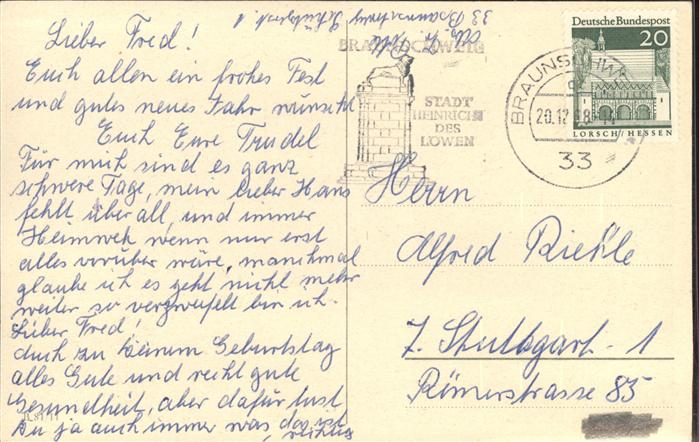 Lieber Fred!
Euch allen ein frohes Fest
und gutes neues Jahr wünscht
Euch Eure Trudel
Für mich sind es ganz
schwere Tage, mein lieber Hans
fehlt überall, und immer
Heimweh, wenn nur erst
alles vorüber wäre, manchmal
glaube ich es geht nicht mehr
weiter so verzweifelt bin ich.
Lieber Fred!
auch zu Deinem Geburtstag
alles Gute und recht gute
Gesundheit, aber dafür tust
Du ja auch immer was das ist
richtig
33 Braunschweig
BRAUNSCHWEIG
STADT
HEINRICHS
DES
LÖWEN
BRAUNSCHWEIG
20.12.68
33
Deutsche Bundespost
20
LORSCH/HESSEN
Herrn
Alfred Riekle
7. Stuttgart-1
Römerstrasse 85